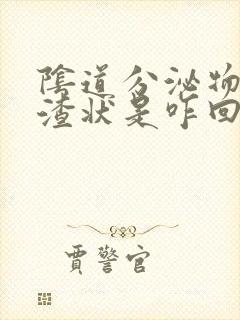 陰道分泌物
渣狀是咋回
賈警官